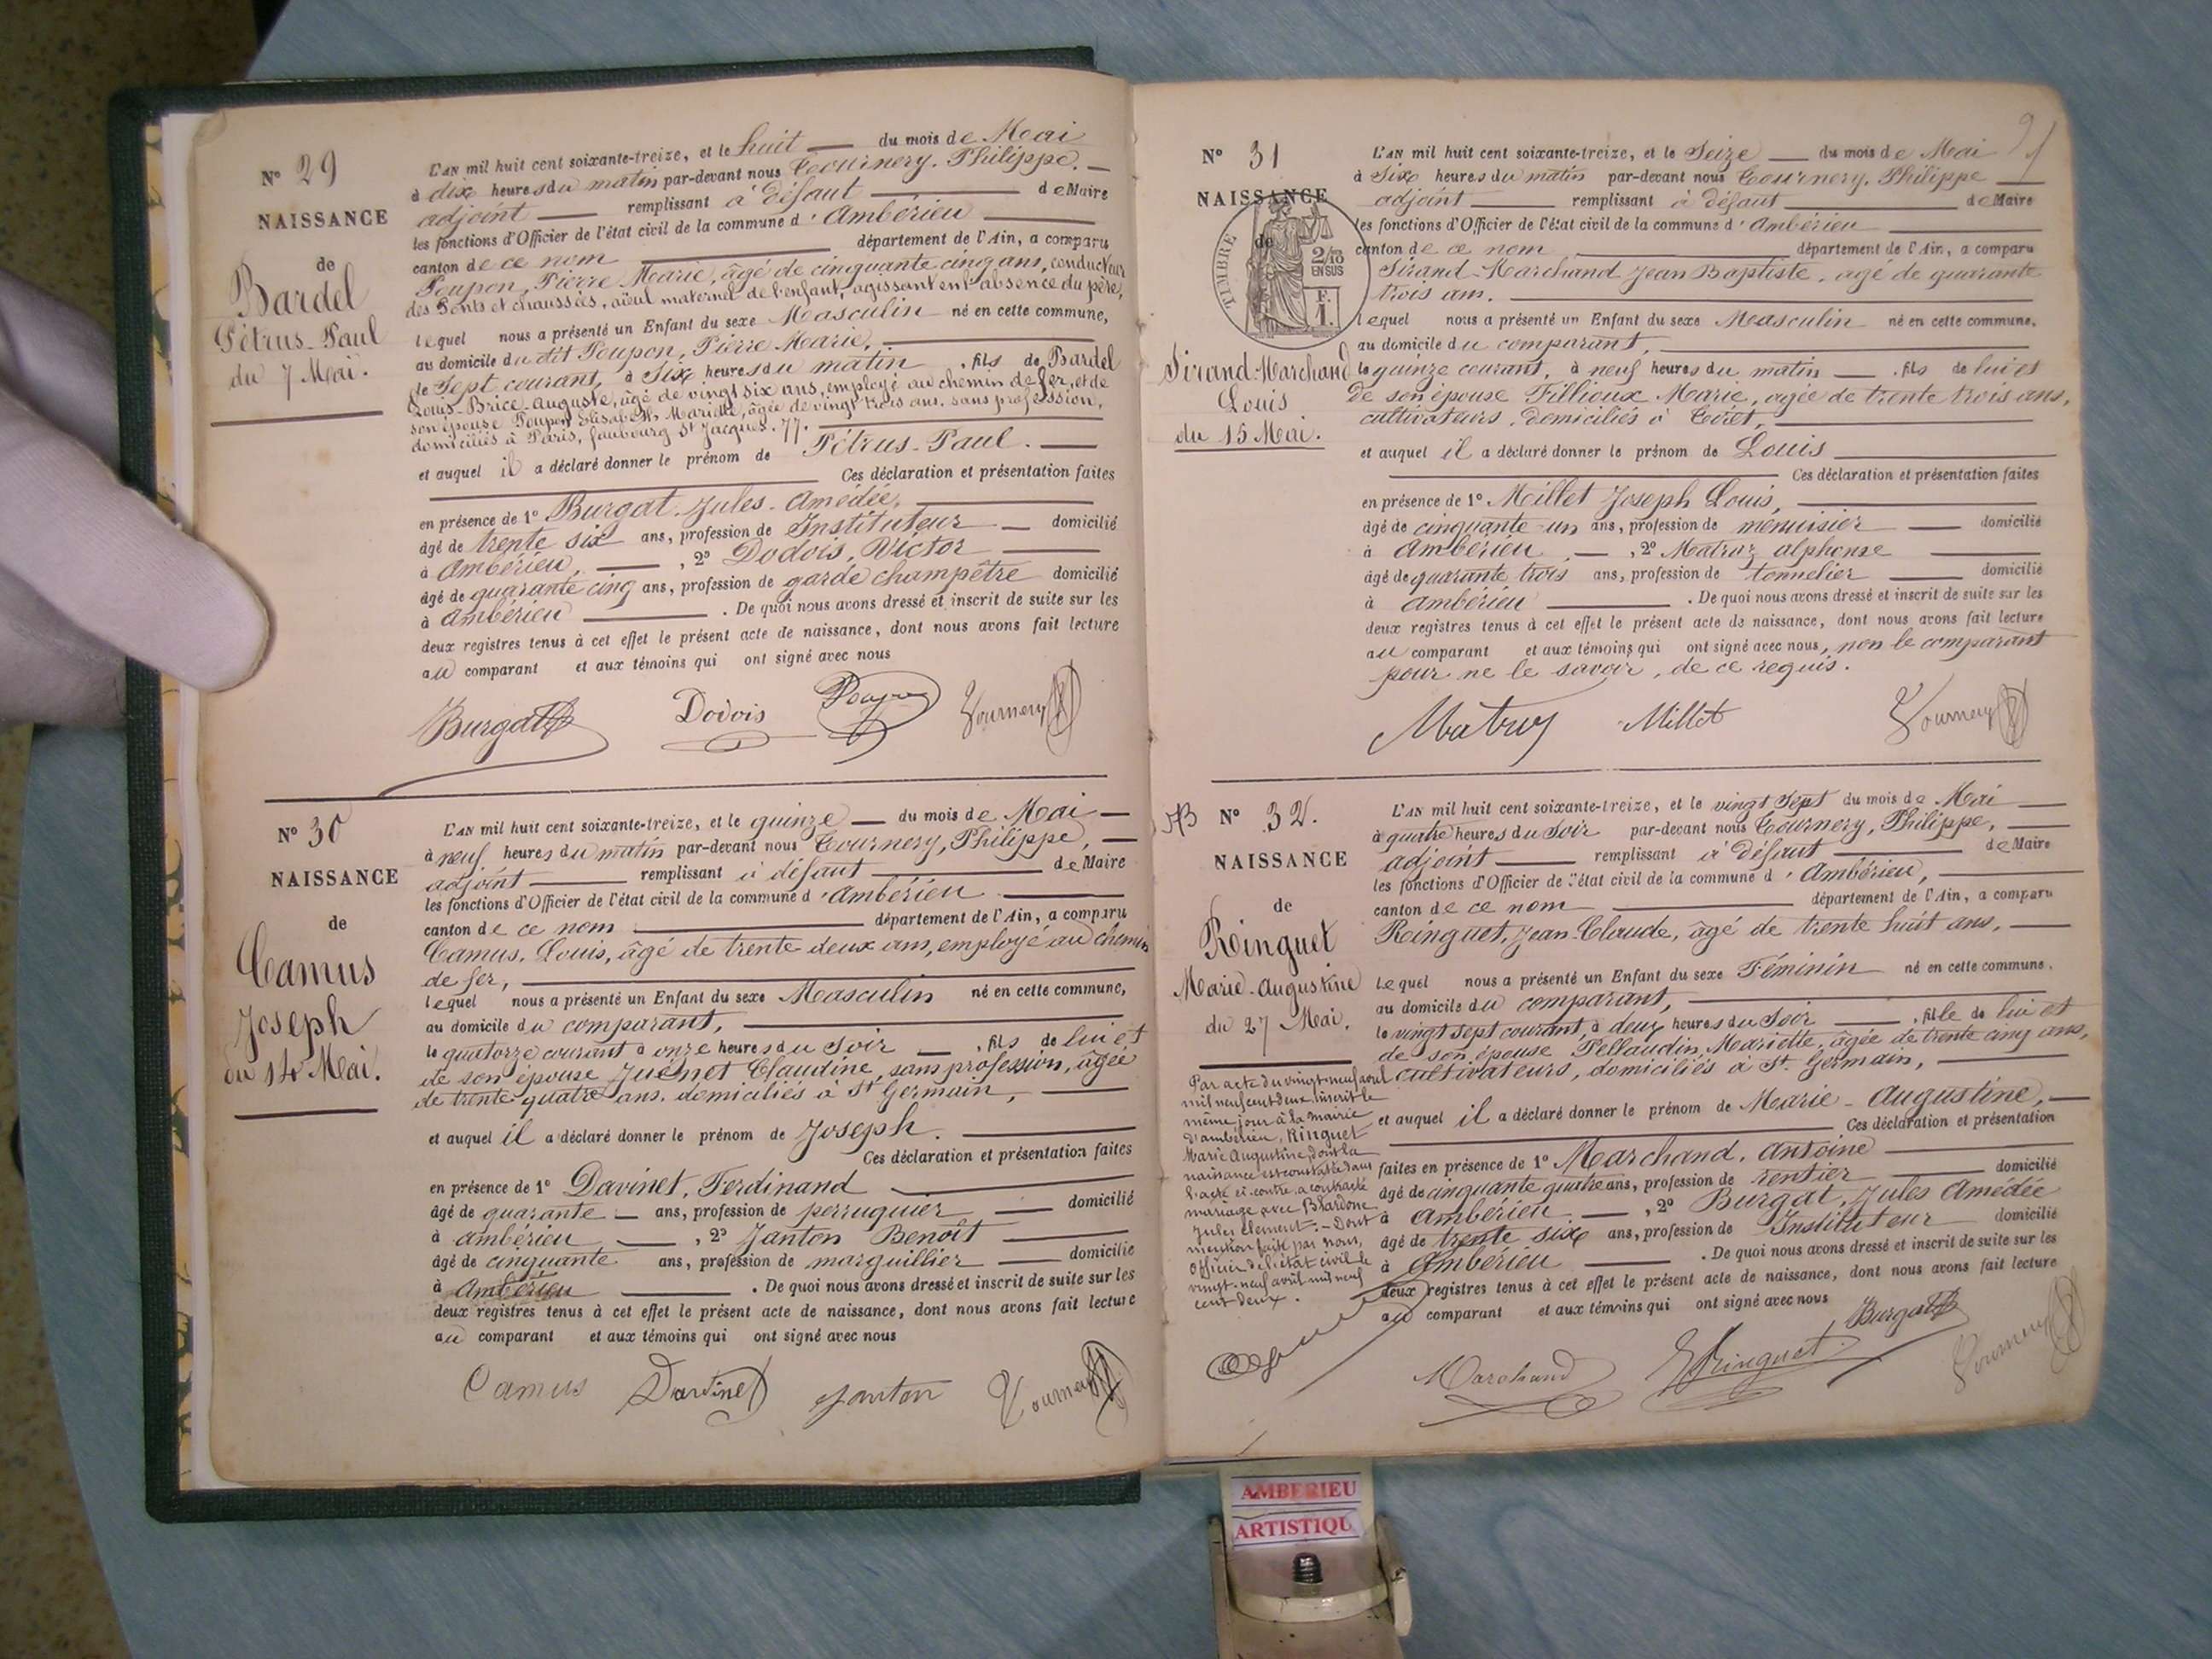 N° 29
NAISSANCE
de
Bardel
Pétrus-Paul
du 7 Mai.
L'AN mil huit cent soixante-treize, et le huit — du mois de Mai
à dix heures du matin par-devant nous Tournery, Philippe, —
adjoint — remplissant à défaut — de Maire
les fonctions d'Officier de l'état civil de la commune d'Ambérieu —
canton de ce nom — département de l'Ain, a comparu
Poupon, Pierre Marie, âgé de cinquante cinq ans, conducteur
des Ponts et chaussées, aïeul maternel de l'enfant, agissant en l'absence du père,
lequel nous a présenté un Enfant du sexe Masculin né en cette commune,
au domicile du dit Poupon, Pierre Marie, —
le Sept courant, à Six heures du matin , fils de Bardel
Louis-Brice-Auguste, âgé de vingt six ans, employé au chemin de fer, et de
son épouse Poupon Elisabeth Mariette, âgée de vingt trois ans, sans profession,
domiciliés à Paris, faubourg St Jacques, 77. —
et auquel il a déclaré donner le prénom de Pétrus-Paul. —
Ces déclaration et présentation faites
en présence de 1° Burgat, Jules-Amédée, —
âgé de trente six ans, profession de Instituteur — domicilié
à Ambérieu, — , 2° Dodois, Victor —
âgé de quarante cinq ans, profession de garde champêtre domicilié
à Ambérieu — . De quoi nous avons dressé et inscrit de suite sur les
deux registres tenus à cet effet le présent acte de naissance, dont nous avons fait lecture
au comparant et aux témoins qui ont signé avec nous
Burgat Dodois Poupon Tournery
N° 30
NAISSANCE
de
Camus
Joseph
du 14 Mai.
L'AN mil huit cent soixante-treize, et le quinze — du mois de Mai —
à neuf heures du matin par-devant nous Tournery, Philippe, —
adjoint — remplissant à défaut — de Maire
les fonctions d'Officier de l'état civil de la commune d'Ambérieu —
canton de ce nom — département de l'Ain, a comparu
Camus, Louis, âgé de trente deux ans, employé au chemin
de fer, —
lequel nous a présenté un Enfant du sexe Masculin né en cette commune,
au domicile du comparant, —
le quatorze courant à onze heures du Soir — , fils de lui et
de son épouse Juenet Claudine, sans profession, âgée
de trente quatre ans, domiciliés à St Germain, —
et auquel il a déclaré donner le prénom de Joseph. —
Ces déclaration et présentation faites
en présence de 1° Davinet, Ferdinand —
âgé de quarante — ans, profession de perruquier — domicilié
à ambérieu — , 2° Janton Benoît —
âgé de cinquante ans, profession de marguillier — domicilié
à Ambérieu — . De quoi nous avons dressé et inscrit de suite sur les
deux registres tenus à cet effet le présent acte de naissance, dont nous avons fait lecture
au comparant et aux témoins qui ont signé avec nous
Camus Davinet Janton Tournery
N° 31
NAISSANCE
de
TIMBRE
2/10
EN SUS
F.
1.
Sirand-Marchand
Louis
du 15 Mai.
L'AN mil huit cent soixante-treize, et le Seize — du mois de Mai
à Six heures du matin par-devant nous Tournery, Philippe —
adjoint — remplissant à défaut — de Maire
les fonctions d'Officier de l'état civil de la commune d'Ambérieu —
canton de ce nom — département de l'Ain, a comparu
Sirand-Marchand Jean Baptiste, âgé de quarante
trois ans. —
lequel nous a présenté un Enfant du sexe Masculin né en cette commune,
au domicile du comparant, —
le quinze courant, à neuf heures du matin — , fils de lui et
de son épouse Fillioux Marie, âgée de trente trois ans,
cultivateurs, domiciliés à Tiret, —
et auquel il a déclaré donner le prénom de Louis —
Ces déclaration et présentation faites
en présence de 1° Millet Joseph Louis, —
âgé de cinquante-un ans, profession de menuisier — domicilié
à Ambérieu, — , 2° Matruz alphonse —
âgé de quarante trois ans, profession de tonnelier — domicilié
à ambérieu — . De quoi nous avons dressé et inscrit de suite sur les
deux registres tenus à cet effet le présent acte de naissance, dont nous avons fait lecture
au comparant et aux témoins qui ont signé avec nous, non le comparant
pour ne le savoir, de ce requis.
Matruz Millet Tournery
N° 32.
NAISSANCE
de
Ringuet
Marie-Augustine
du 27 Mai.
Par acte du vingt-neuf avril
mil neuf cent deux, inscrit le
même jour à la mairie
d'ambérieu, Ringuet
Marie Augustine, dont la
naissance est constatée dans
l'acte ci-contre, a contracté
mariage avec Bhardone
Jules Clément. – Dont
mention faite par nous,
Officier de l'état civil le
vingt-neuf avril mil neuf
cent deux.
L'AN mil huit cent soixante-treize, et le vingt Sept du mois de Mai —
à quatre heures du Soir par-devant nous Tournery, Philippe, —
adjoint — remplissant à défaut — de Maire
les fonctions d'Officier de l'état civil de la commune d'Ambérieu, —
canton de ce nom — département de l'Ain, a comparu
Ringuet, Jean-Claude, âgé de trente huit ans, —
lequel nous a présenté un Enfant du sexe Féminin né en cette commune.
au domicile du comparant, —
le vingt Sept courant, à deux heures du Soir — , fille de lui et
de son épouse Pellaudin, Mariette, âgée de trente cinq ans,
cultivateurs, domiciliés à St. Germain, —
et auquel il a déclaré donner le prénom de Marie-Augustine, —
Ces déclaration et présentation
faites en présence de 1° Marchand, Antoine —
âgé de cinquante quatre ans, profession de rentier — domicilié
à Ambérieu — , 2° Burgat, Jules Amédée
âgé de trente six ans, profession de Instituteur domicilié
à Ambérieu — . De quoi nous avons dressé et inscrit de suite sur les
deux registres tenus à cet effet le présent acte de naissance, dont nous avons fait lecture
au comparant et aux témoins qui ont signé avec nous Burgat
Marchand Ringuet Tournery
AMBERIEU
ARTISTIQU